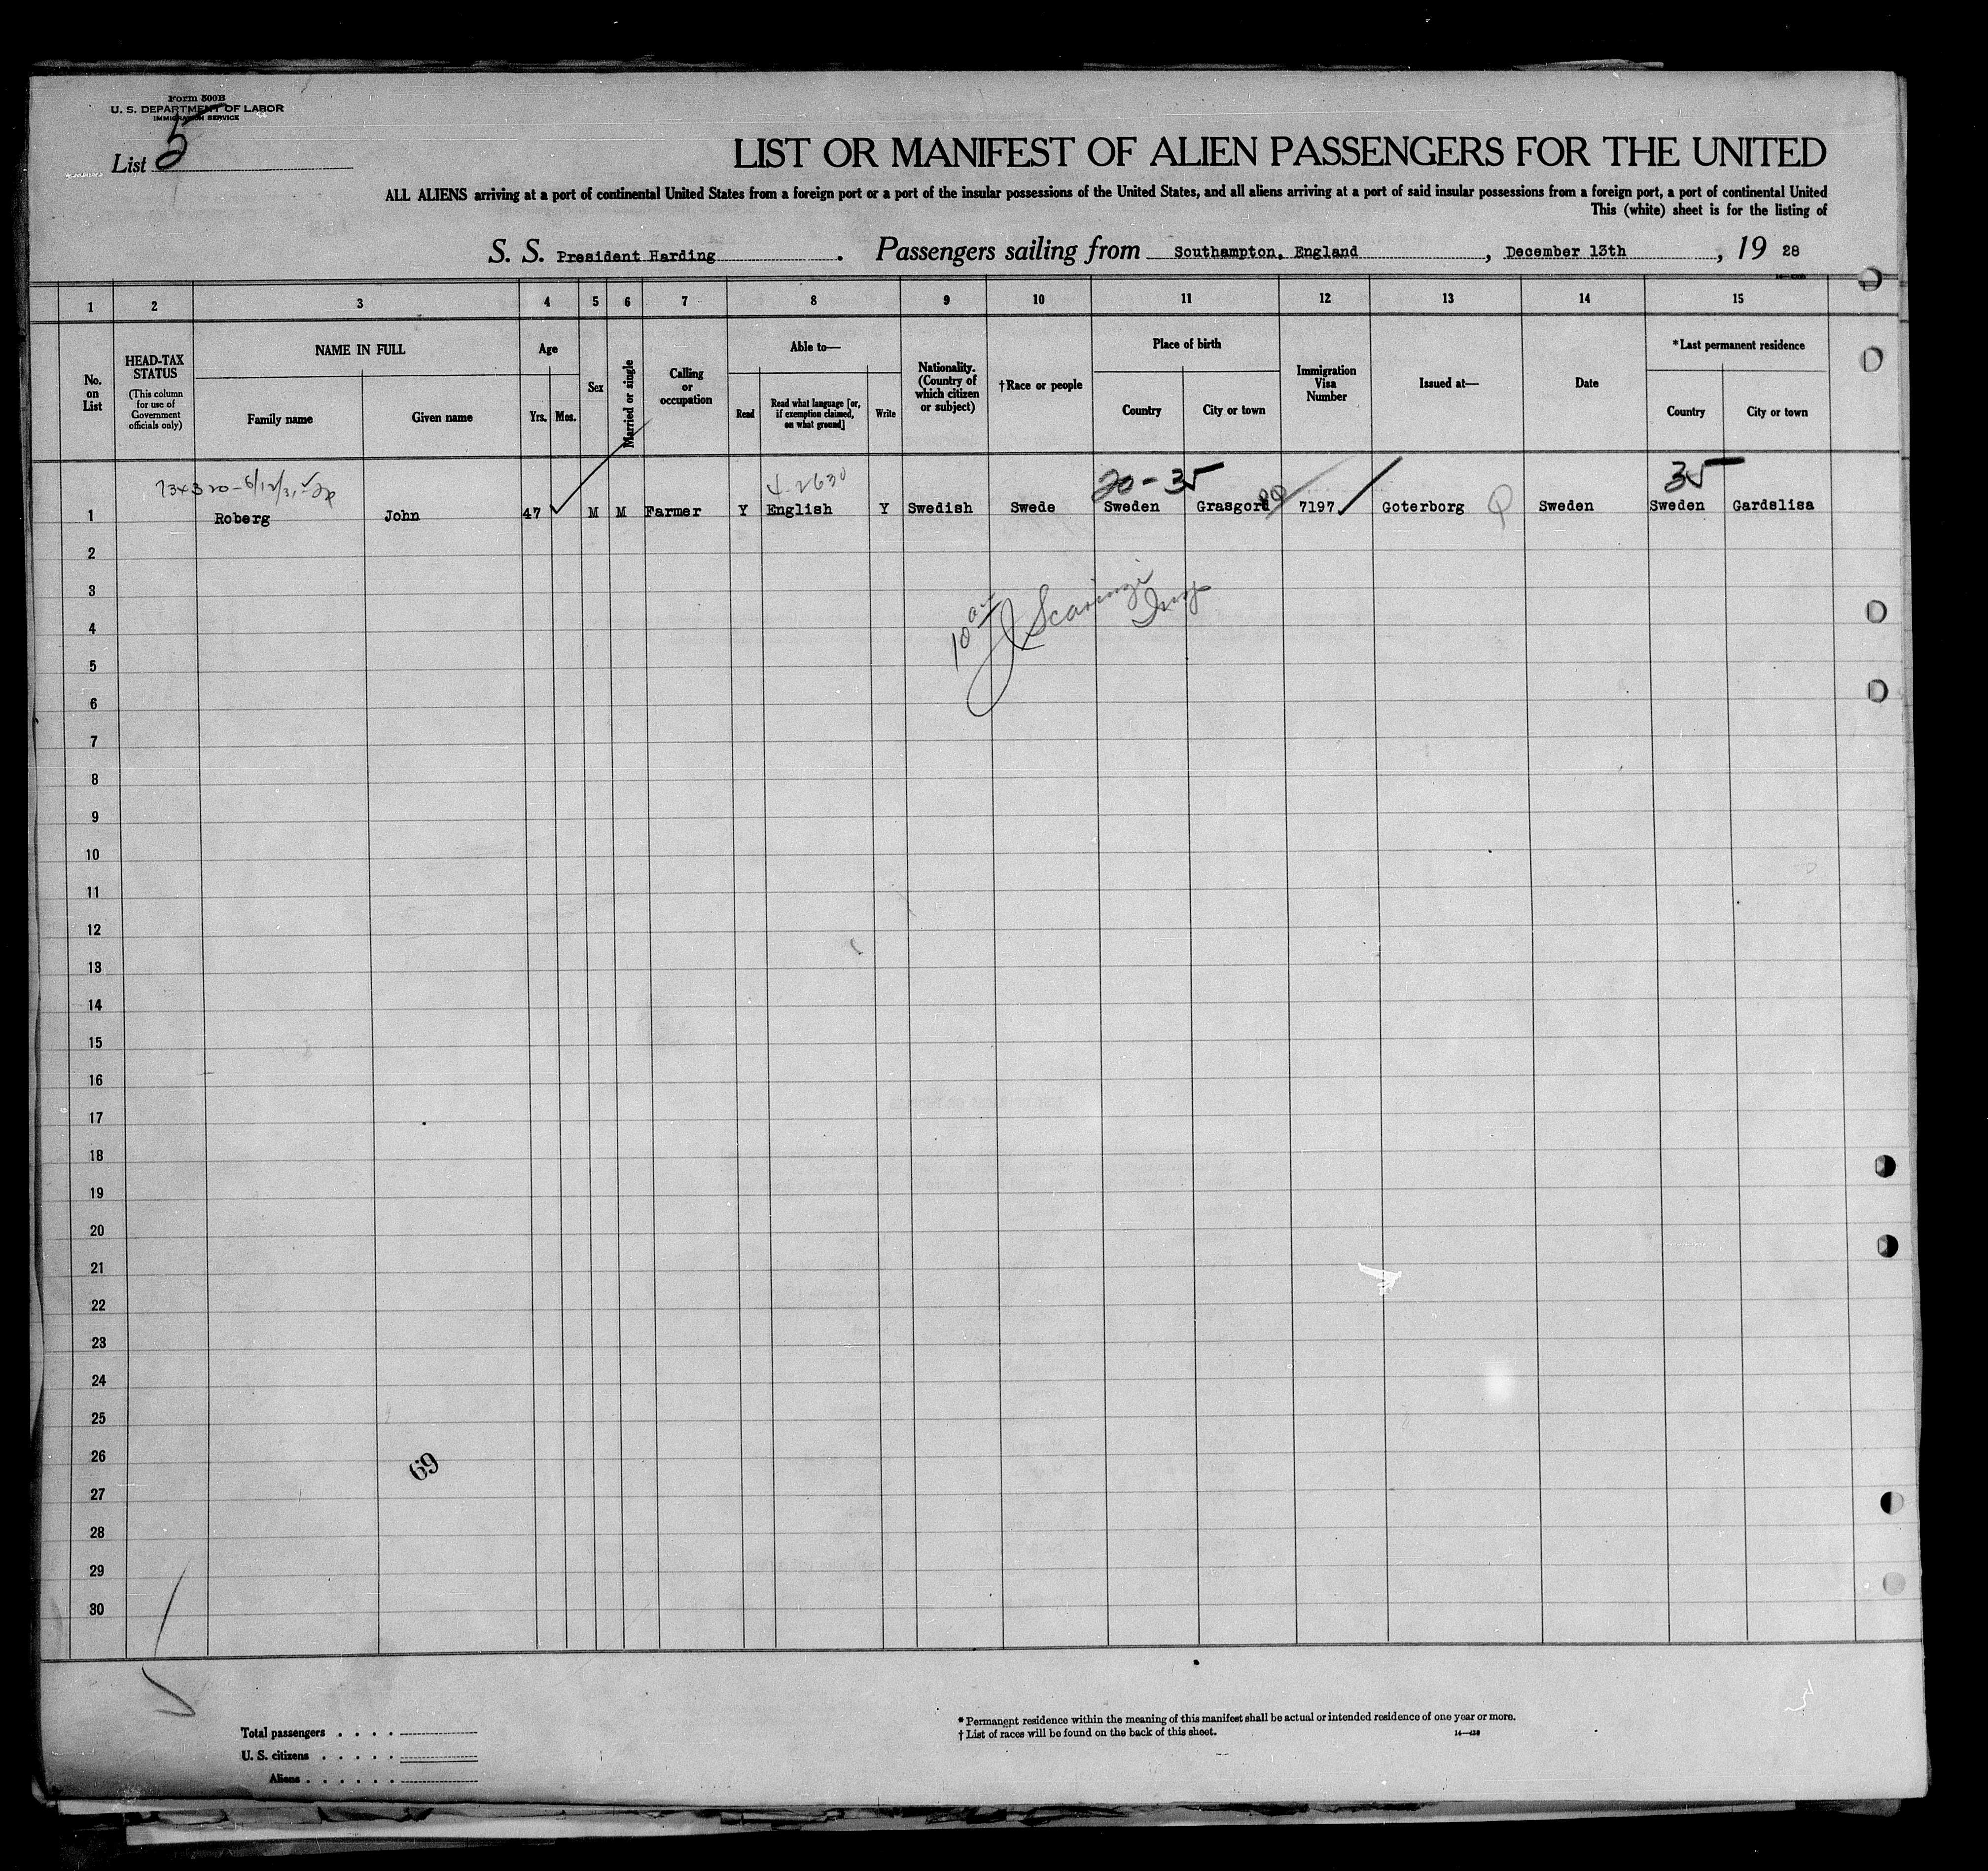 Form 500B
U. S. DEPARTMENT OF LABOR
IMMIGRATION SERVICE
List 5
LIST OR MANIFEST OF ALIEN PASSENGERS FOR THE UNITED
ALL ALIENS arriving at a port of continental United States from a foreign port or a port of the insular possessions of the United States, and all aliens arriving at a port of said insular possessions from a foreign port, a port of continental United
This (white) sheet is for the listing of
S. S. President Harding . Passengers sailing from Southampton, England , December 13th , 19 28
1 2 3 4 5 6 7 8 9 10 11 12 13 14 15
No. on List
HEAD-TAX STATUS
(This column for use of Government officials only)
NAME IN FULL
Family name
Given name
Age
Yrs.
Mos.
Sex
Married or single
Calling or occupation
Able to—
Read
Read what language [or, if exemption claimed, on what ground]
Write
Nationality. (Country of which citizen or subject)
†Race or people
Place of birth
Country
City or town
Immigration Visa Number
Issued at—
Date
*Last permanent residence
Country
City or town
4-2630
20-35
35
1 Roberg John 47 M M Farmer Y English Y Swedish Swede Sweden Grasgord 7197 Goterborg Sweden Sweden Gardslisa
2
3
4
5
6
7
8
9
10
11
12
13
14
15
16
17
18
19
20
21
22
23
24
25
26
69
27
28
29
30
Total passengers . . . .
U. S. citizens . . . . .
Aliens . . . . . .
* Permanent residence within the meaning of this manifest shall be actual or intended residence of one year or more.
† List of races will be found on the back of this sheet.